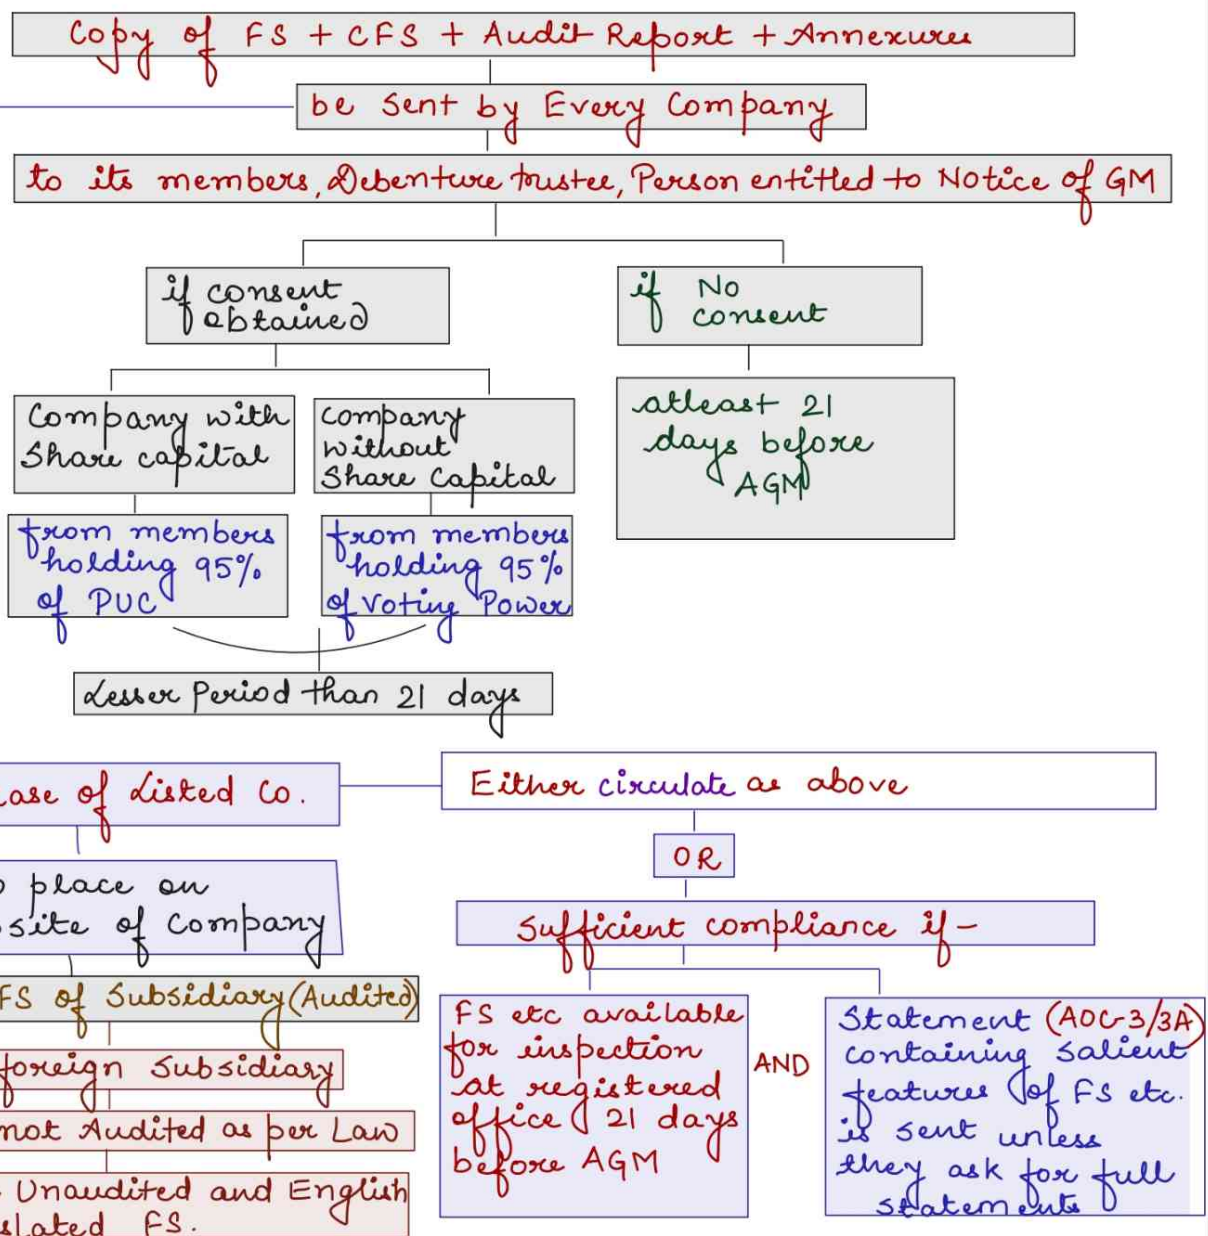 Copy of FS + CFS + Audit Report + Annexures
be sent by Every Company
to its members, Debenture trustee, Person entitled to Notice of GM
if consent
obtained
if No
consent
Company with
Share capital
Company
without
Share Capital
atleast 21
days before
AGM
from members
holding 95%
of PUC
from members
holding 95%
of Voting Power
Lesser Period than 21 days
ase of Listed Co.
Either circulate as above
OR
place on
site of Company
Sufficient compliance if-
FS of Subsidiary (Audited)
foreign Subsidiary
not Audited as per Law
Unaudited and English
slated FS.
FS etc available
for inspection
at registered
office 21 days
before AGM
AND
Statement (AOC-3/3A)
containing Salient
features of FS etc.
is sent unless
they ask for full
statements